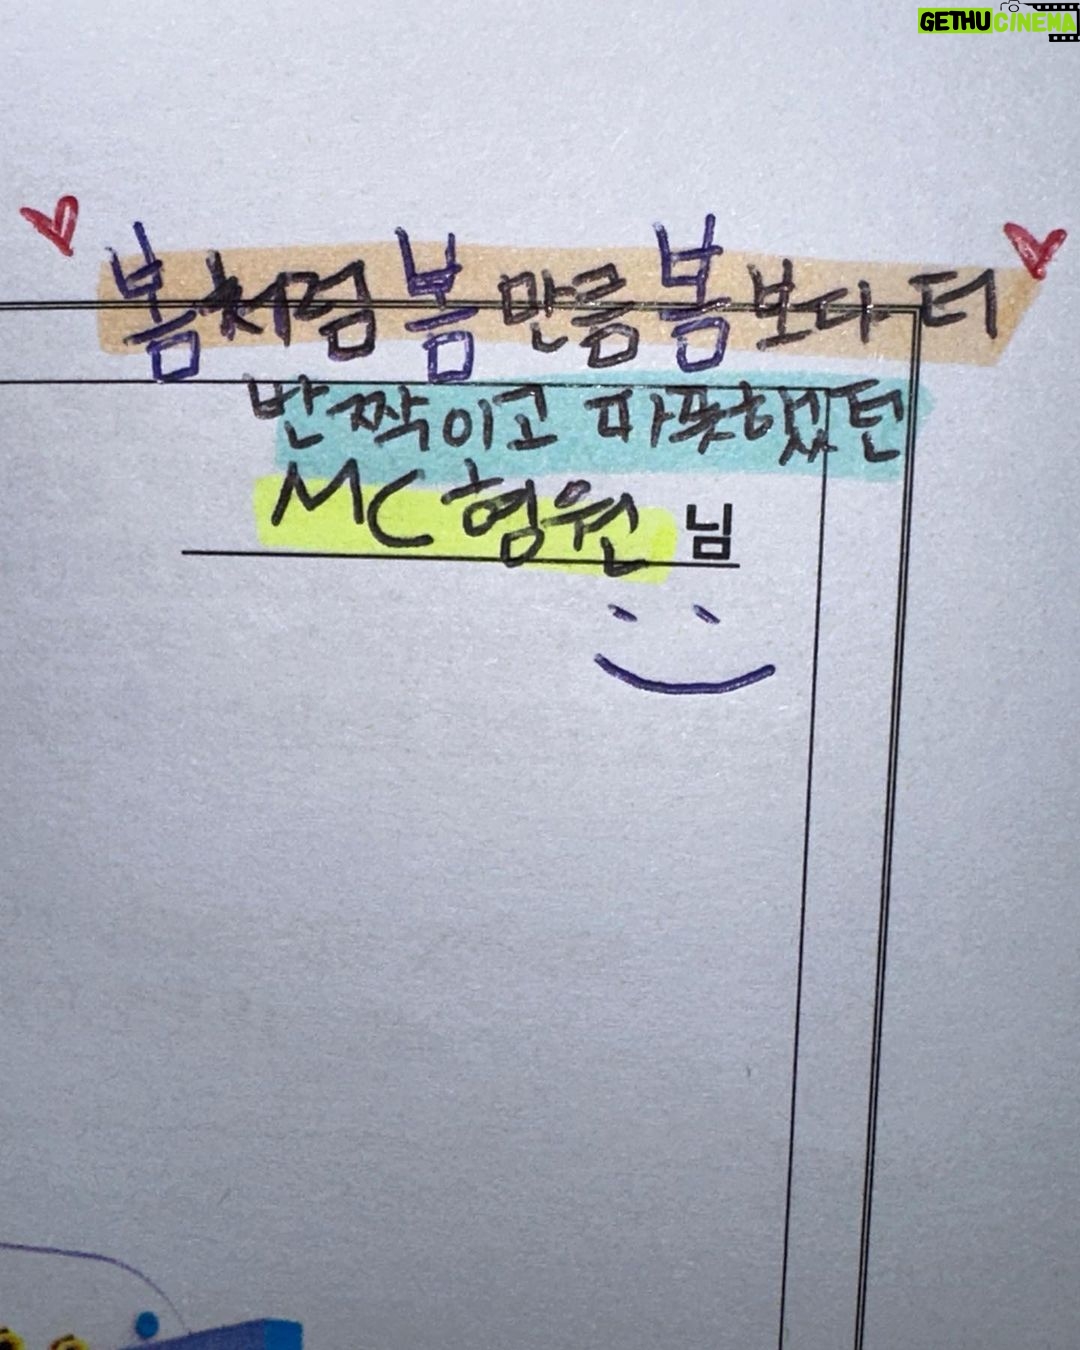 GETHU CINEMA
봄처럼 봄만큼 봄보다 더
반짝이고 따뜻했던
MC 형원 님